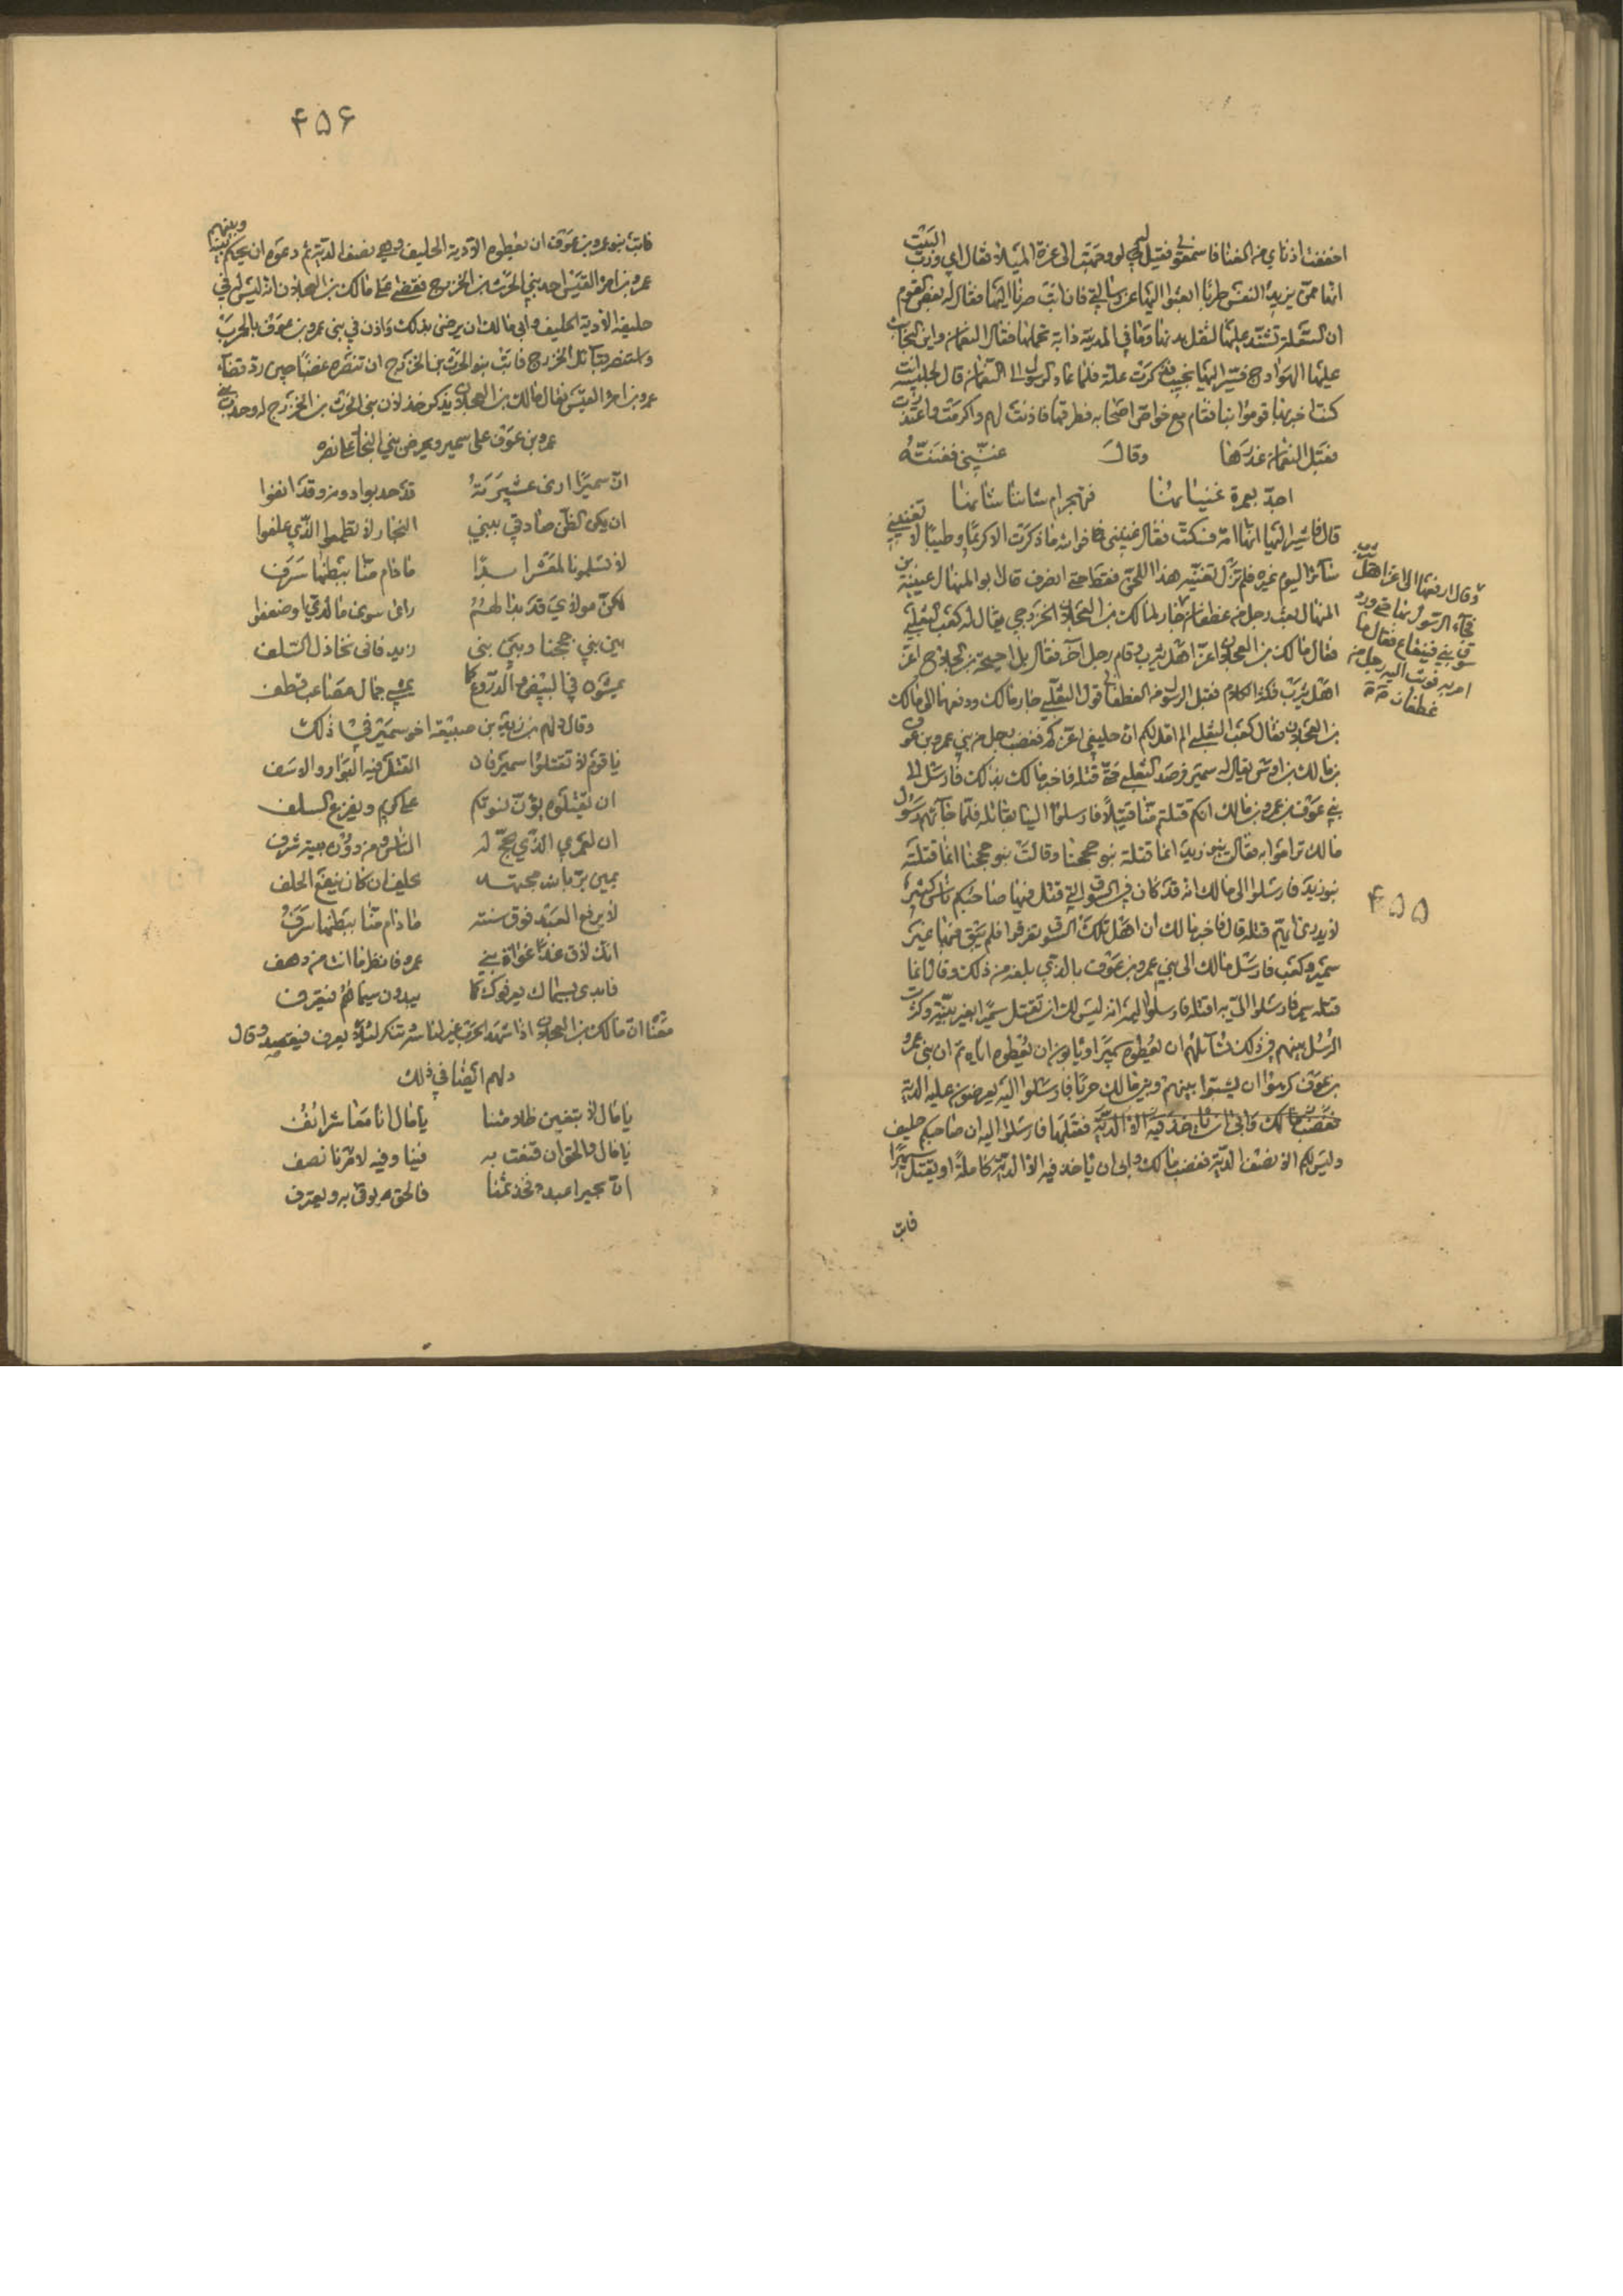 اخففت اذناي من الغنا فاسمعوني فقيل له لو وجهت الى عزة الميلاء فقال اي ورب البيت
انها ممن يزيد النفس طربا ابعثوا اليها عن رسالتي فان ابت صرنا اليها فقال له بعض القوم
ان النقلة تشتد عليها لثقل بدنها وما في المدينة دابة تحملها فقال النعمان واين النجائب
عليها الهوادج فسير اليها بنجيب فذكرت علة فلما عاد الرسول الى النعمان قال لجليسه انت
كنت اخبر بها قوموا بنا فقام مع خواص اصحابه فطرقها فاذنت لهم واكرمت واعتذرت
فقبل النعمان عذرها وقال غنيني فغنته
اجد بعمرة غنيانها فتهجر ام شاننا شانها
قال فاشير اليها انها امه فسكتت فقال غنيني فوالله ما ذكرت الا كرما وطيبا لا تغنيني
سائر اليوم غيره فلم تزل تغنيه هذا اللحن فقط حتى انصرف قال ابو المنهال عيينة بن
المنهال بعث رجل من غطفان جار لمالك بن العجلان الخزرجي يقال له كعب الثعلبي
فقال مالك بن العجلان اعز اهل يثرب وقام رجل آخر فقال بل احيحة بن الجلاح اعز
اهل يثرب فكثر الكلام فقبل الرسول الغطفاني قول الثعلبي جار مالك ودفعها الى مالك
بن العجلان فقال كعب الثعلبي الم اقل لكم ان حليفي اعزكم فغضب رجل من بني عمرو بن عوف
بن مالك بن اوس يقال له سمير فرصد الثعلبي حتى قتله فاخبر مالك بذلك فارسل الى
بني عوف بن عمرو بن مالك انكم قتلتم منا قتيلا فارسلوا الينا بقاتله فلما جاءهم رسول
مالك تراموا به فقالت بنو زيد انما قتلته بنو جحجبا وقالت بنو جحجبا انما قتلته
بنو زيد فارسلوا الى مالك انه قد كان في السوق التي قتل فيها صاحبكم ناس كثير
لا يدرى ايهم قتله قال فاخبر مالك ان اهل تلك السوق تفرقوا فلم يبق فيها غير
سمير وكعب فارسل مالك الى بني عمرو بن عوف بالذي بلغه من ذلك وقال انما
قتله سمير فارسلوا الي به اقتله فارسلوا اليه انه ليس لك ان تقتل سميرا بغير بينة وكثرت
الرسل بينهم في ذلك يسائلهم ان يعطوه سميرا ويابون ان يعطوه اياه ثم ان بني عمرو
بن عوف كرهوا ان يشبوا بينهم وبين مالك حربا فارسلوا اليه يعرضون عليه الدية
فغضب مالك وابى ان ياخذ فيه الا الدية فقبلها فارسلوا اليه ان صاحبكم حليف
وليس لكم الا نصف الدية فغضب مالك وابى ان ياخذ فيه الا الدية كاملة او يقتل سميرا
فابت
وقال ادفعها الى اعز اهل يثرب
فجاء الرسول بها حتى ورد
سوق بني قينقاع فقال ما
امر به فوثب اليه رجل من
غطفان
۴۵۵
۴۵۶
فابت بنو عمرو بن عوف ان يعطوه الا دية الحليف وهي نصف الدية ثم دعوه ان يحكم بينهم وبينه
عمرو بن امرؤ القيس احد بني الحرث بن الخزرج فقضى على مالك بن العجلان انه ليس له في
حليفه الا دية الحليف وابى مالك ان يرضى بذلك واذن في بني عمرو بن عوف بالحرب
واستنصر قبائل الخزرج فابت بنو الحرث بن الخزرج ان تنصره غضبا حين رد قضاء
عمرو بن امرؤ القيس فقال مالك بن العجلان يذكر خذلان بني الحرث بن الخزرج له وحدب بني
عمرو بن عوف على سمير ويحرض بني النجار على نصره
ان سميرا ارى عشيرته قد حدبوا دونه وقد انفوا
ان يكن الظن صادقي ببني النجار لا يطعموا الذي علفوا
لا يسلمونا لمعشر ابدا ما دام منا ببطنها شرف
لكن موالي قد بدا لهم راى سوى ما لدي او ضعفوا
بين بني جحجبا وبين بني زيد فانى تخاذل السلف
يمشون في البيض والدروع كما يمشي جمال مصاعب قطف
وقال درهم بن زيد بن ضبيعة اخو سمير في ذلك
يا قوم لا تقتلوا سميرا فان القتل فيه البوار والاسف
ان تقتلوه يؤن نسوتكم على كريم ويفزع السلف
اني لعمري الذي يحج له الناس ومن دون بيته شرف
يمين بر بالله مجتهد يحلف ان كان ينفع الحلف
لا يرفع العبد فوق سنته ما دام منا ببطنها شرف
انك لاق غدا غواة بني عمرو فانظر ما انت مزدهف
فابدى سيماك يعرفوك كما يبدون سيماهم فتعترف
معنا ان مالك بن العجلان اذا شهد الحرب غير لباسه وتنكر لئلا يعرف فيقصد وقال
درهم ايضا في ذلك
يا مال لا تبغين ظلامتنا يا مال انا معاشر انف
يا مال والحق ان قنعت به فينا وفيه لامرنا نصف
ان بجيرا عبد فخذ ثمنا فالحق يوفى به ويعترف